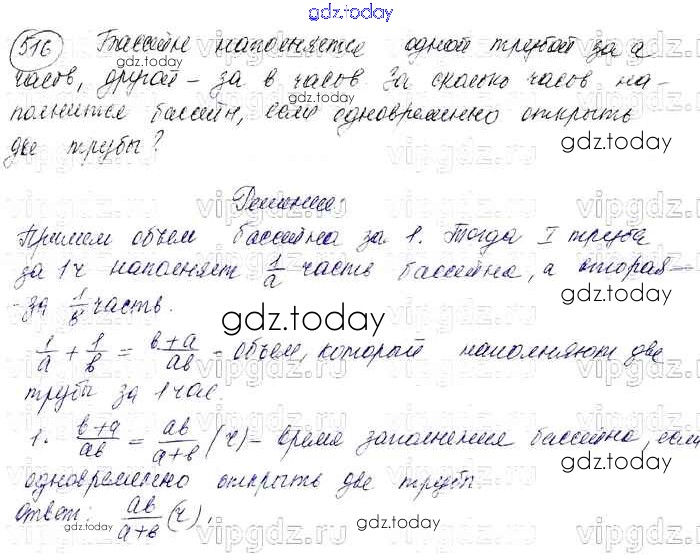 gdz.today
516 Бассейн наполняется одной трубой за a
часов, другой – за в часов. За сколько часов на-
gdz.today
полнится бассейн, если одновременно открыть
две трубы?
gdz.today
vipgdz.ru
Решение:
Примем объем бассейна за 1. Тогда I труба
за 1ч наполняет 1/a часть бассейна, а вторая –
- за 1/в часть.
gdz.today
1/a + 1/в = в+a/aв – объем, который наполняют две
трубы за 1 час.
1 : в+a/aв = aв/a+в (ч) – время заполнения бассейна, если
gdz.today
одновременно открыть две трубы.
Ответ: aв/a+в (ч).
gdz.today
vipgdz.ru